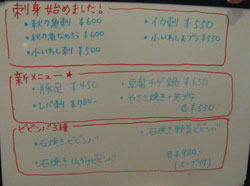 刺身始めました!
・秋刀魚刺 ¥600
・秋刀魚なめろう ¥600
・小いわし刺 ¥500
・イカ刺 ¥550
・小いわし天ぷら ¥550
新メニュー ★
・豚足 ¥450
・レバ刺 ¥780-
・豆腐チゲ鍋 ¥650
・やさい焼き・天ぷら
各¥550
ビビンバ3種
・石焼きビビンバ
・石焼き
・石焼き野菜ビビンバ
各¥980-
(スープ付)